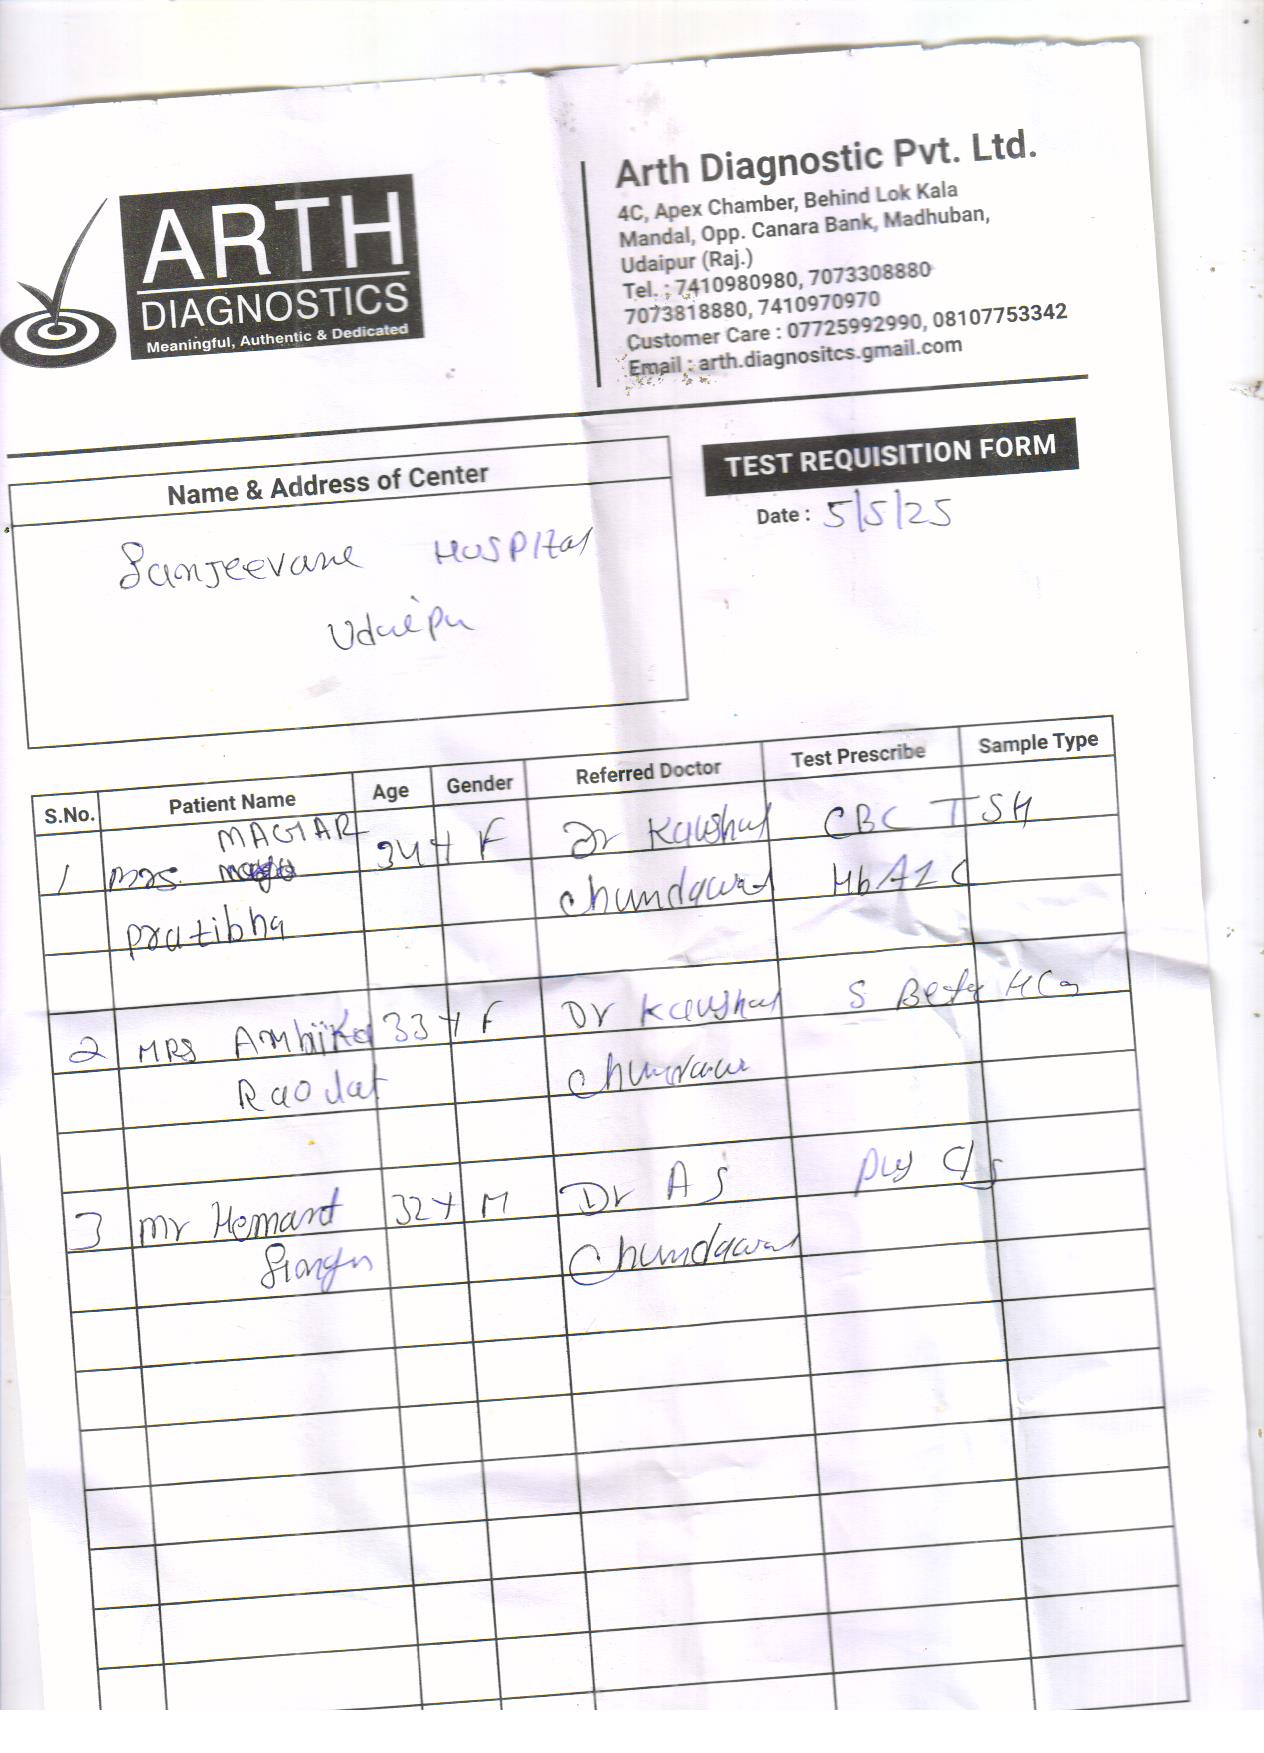 ARTH
DIAGNOSTICS
Meaningful, Authentic & Dedicated
Arth Diagnostic Pvt. Ltd.
4C, Apex Chamber, Behind Lok Kala
Mandal, Opp. Canara Bank, Madhuban,
Udaipur (Raj.)
Tel. : 7410980980, 7073308880
7073818880, 7410970970
Customer Care : 07725992990, 08107753342
Email : arth.diagnositcs.gmail.com
Name & Address of Center
TEST REQUISITION FORM
Date : 5/5/25
Sanjeevane HOSPITal
Udaipu
S.No. Patient Name Age Gender Referred Doctor Test Prescribe Sample Type
MAGIAR
1 Mrs. 34 Y F Dr Kaushal CBC TSH
Pratibha Chundawat HbA1C
2 MRS Ambika 33 Y F Dr Kaushal S Beta HCG
Dr A S
3 Mr Hemant 32 Y M
Chundawat